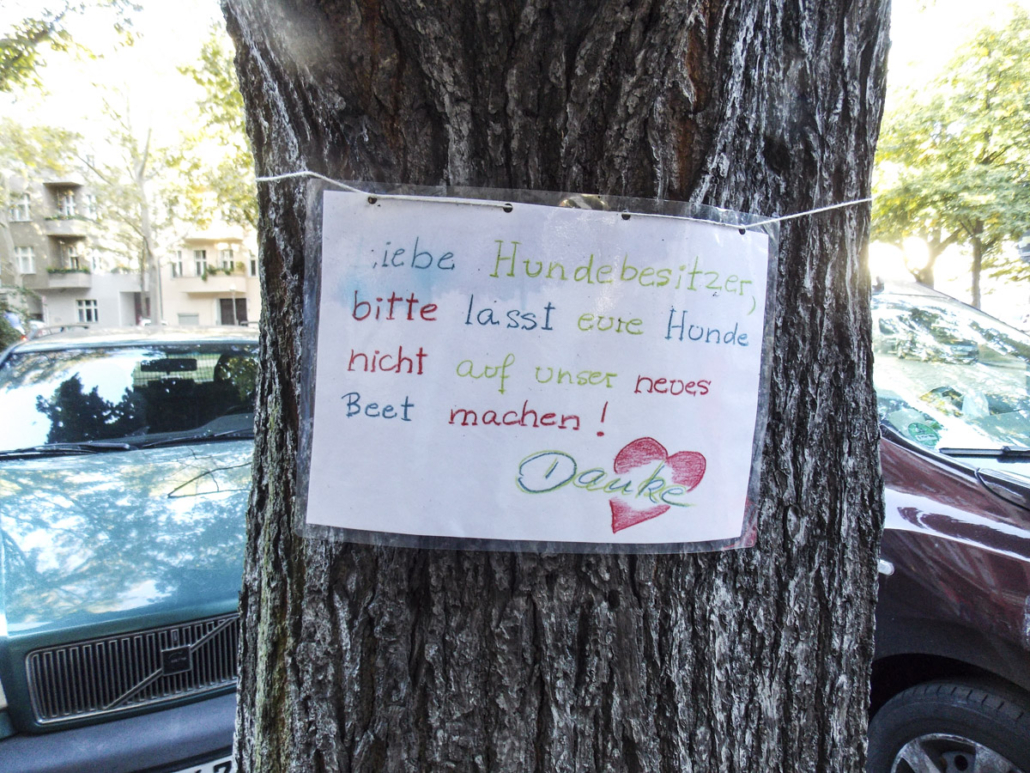 Liebe Hundebesitzer,
bitte lasst eure Hunde
nicht auf unser neues
Beet machen!
Danke